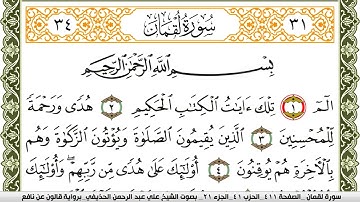 ٣٤ سُورَةُ لُقْمَانَ ٣١
بِسْمِ اللَّهِ الرَّحْمَٰنِ الرَّحِيمِ
أَلَٓمِّٓ ١ تِلْكَ ءَايَٰتُ الْكِتَٰبِ الْحَكِيمِ ٢ هُدىً وَرَحْمَةً
لِّلْمُحْسِنِينَ ٣ الَّذِينَ يُقِيمُونَ الصَّلَوٰةَ وَيُوتُونَ الزَّكَوٰةَ وَهُم
بِالْأَخِرَةِ هُمْ يُوقِنُونَ ٤ أُوْلَٰٓئِكَ عَلَىٰ هُدىً مِّن رَّبِّهِمْ وَأُوْلَٰٓئِكَ
سورة لقمان _ الصفحة ٤١١_ الحزب ٤١ _ الجزء ٢١ بصوت الشيخ علي عبد الرحمن الحذيفي _ برواية قالون عن نافع